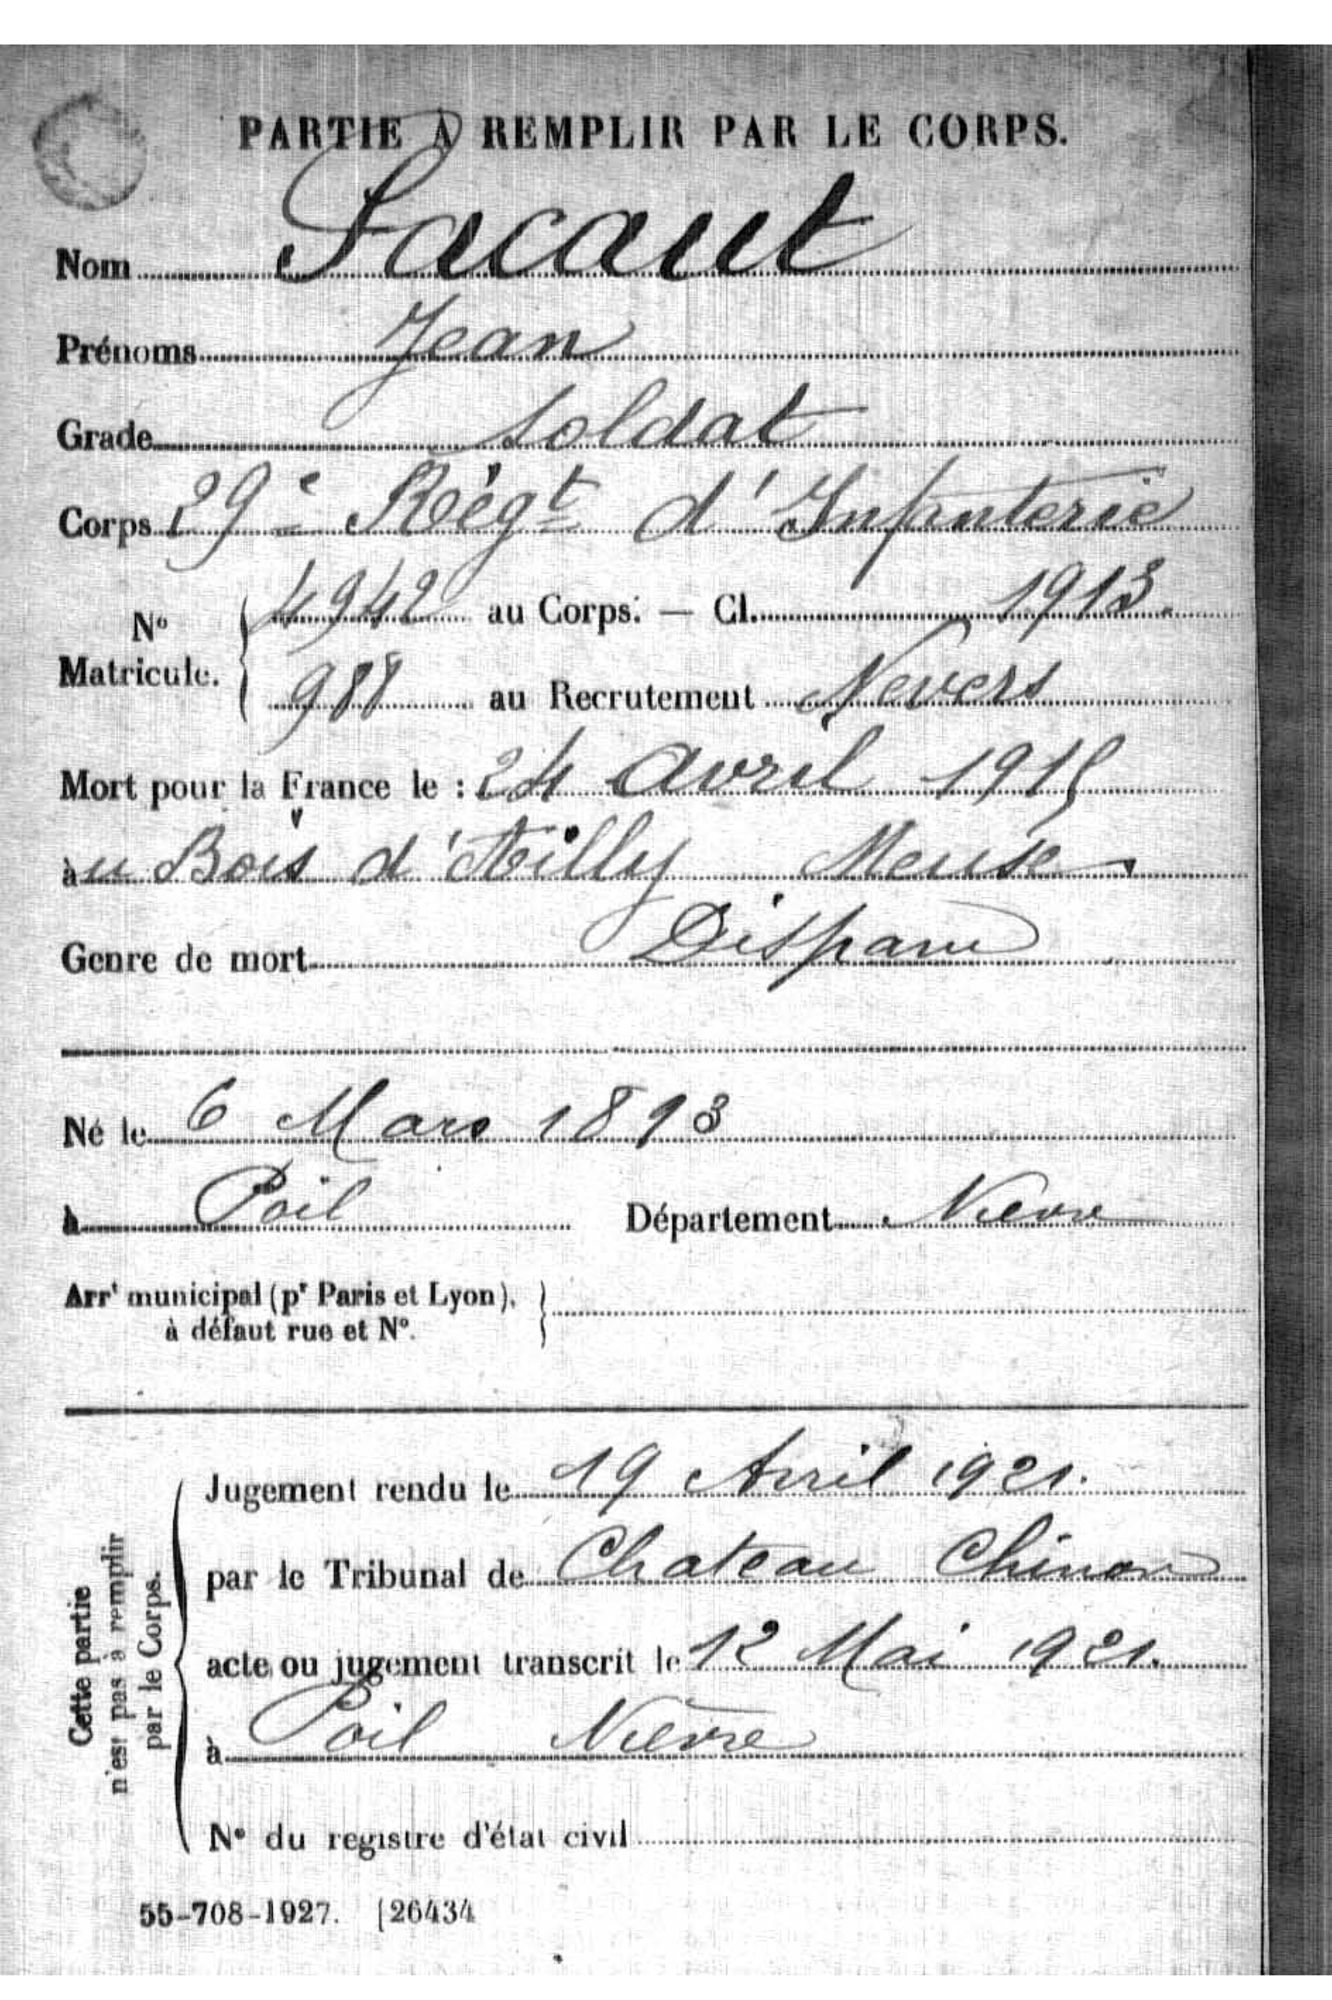 PARTIE À REMPLIR PAR LE CORPS.
Nom Lacaut
Prénoms Jean
Grade Soldat
Corps 29e Régt d'Infanterie
N° Matricule. 4942 au Corps. — Cl. 1913.
988 au Recrutement Nevers
Mort pour la France le : 24 Avril 1915
au Bois d'Ailly Meuse
Genre de mort Disparu
Né le 6 Mars 1893
à Poil Département Nièvre
Arrt municipal (pr Paris et Lyon),
à défaut rue et N°.
Cette partie
n'est pas à remplir
par le Corps.
Jugement rendu le 19 Avril 1921.
par le Tribunal de Chateau Chinon
acte ou jugement transcrit le 12 Mai 1921.
à Poil Nièvre
N° du registre d'état civil
55-708-1927. [26434